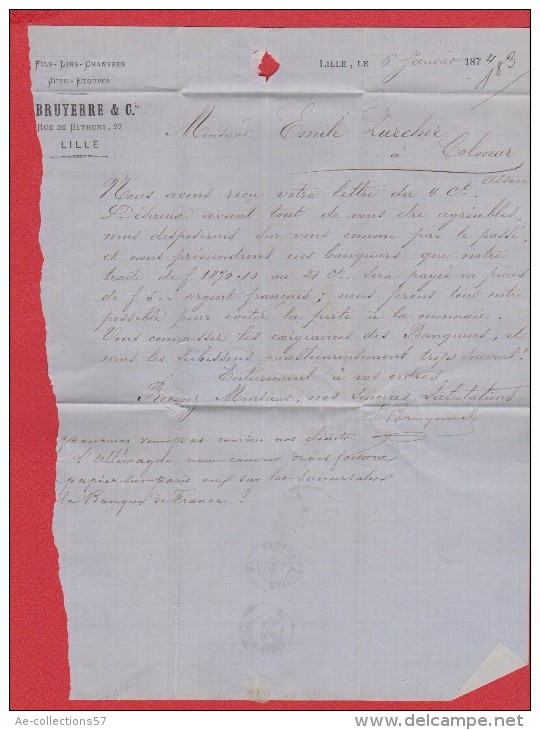 Fils-Lins-Chanvres
Jute-Étoupes
BRUYERRE & C.ie
Rue de Béthune, 27
LILLE
Lille, le 6 Janvier 1874
Monsieur Emile Zurcher
à Colmar
Alsace
Nous avons reçu votre lettre du 4 Ct.
Désireux avant tout de vous être agréables,
nous disposerons sur vous comme par le passé,
et nous préviendrons nos banquiers que notre
traite de f 1870.10 au 21 Ct. sera payée en pièces
de f 5 argent français; nous ferons tout notre
possible pour éviter la perte à la monnaie.
Vous connaissez les exigeances des Banquiers, et
nous les subissons malheureusement trop souvent!
Entièrement à vos ordres,
Recevez Monsieur, nos sincères salutations
pourriez vous pas comme nos clients
d'Allemagne nous couvrir de nos factures
papier sur paris ou sur les succursales
la Banque de France ?
Ae-collections57
http://www.delcampe.net